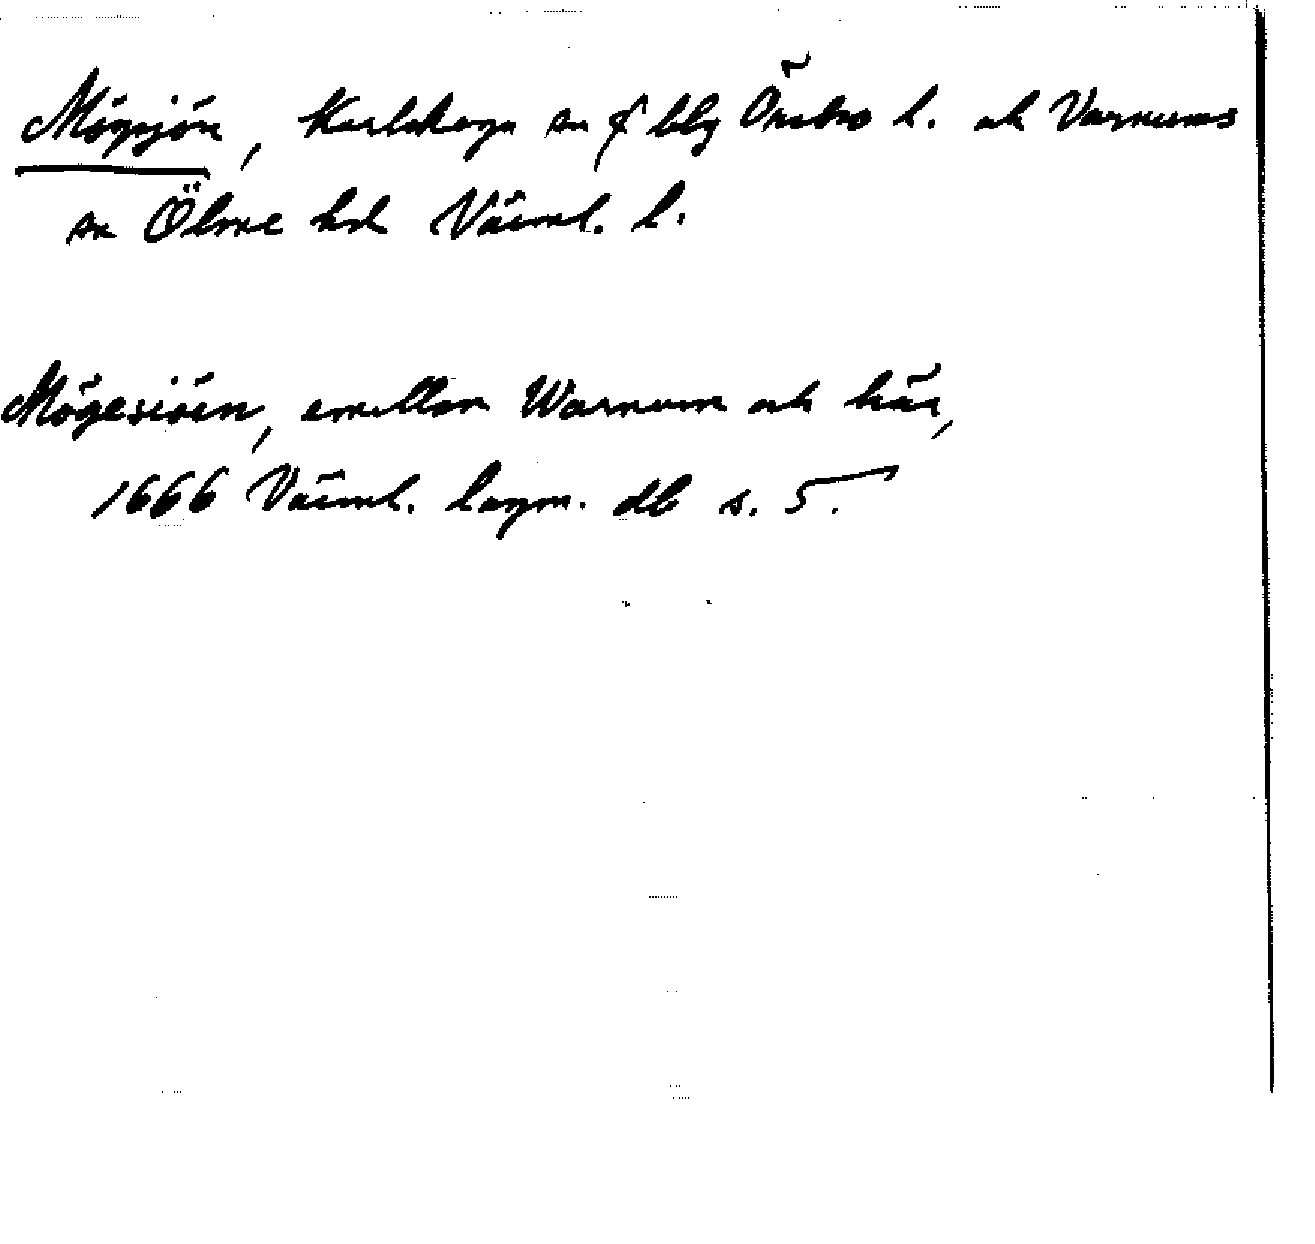 Mögsjön, Karlskoga sn f blg Örebro l. och Varnums
sn Ölme hd Värml. l.
Mögesiöen, emellan Warnum och här,
1666 Värml. lagm. db s. 5.